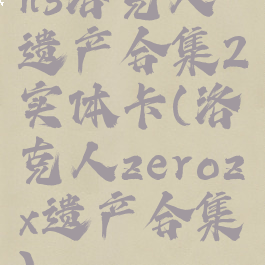 ns洛克人
遗产合集2
实体卡(洛
克人zeroz
x遗产合集
)